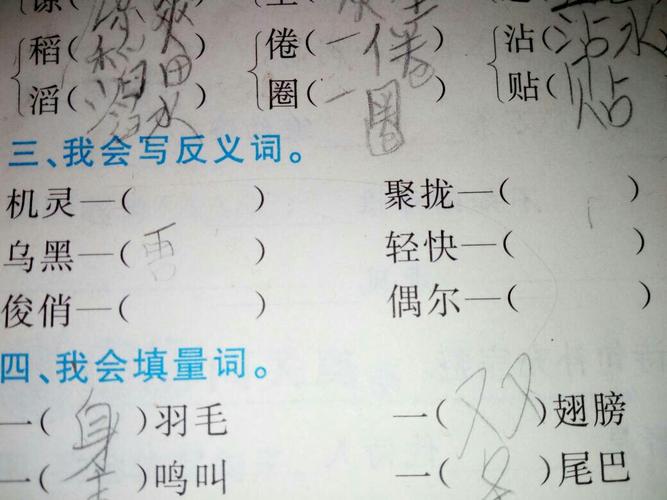 稻(稻田) 倦(一倦) 沾(沾水)
滔(滔水) 圈(一圈) 贴(贴)
三、我会写反义词。
机灵—( ) 聚拢—( )
乌黑—(雪) 轻快—( )
俊俏—( ) 偶尔—( )
四、我会填量词。
一(身)羽毛 一(双)翅膀
一( )鸣叫 一( )尾巴